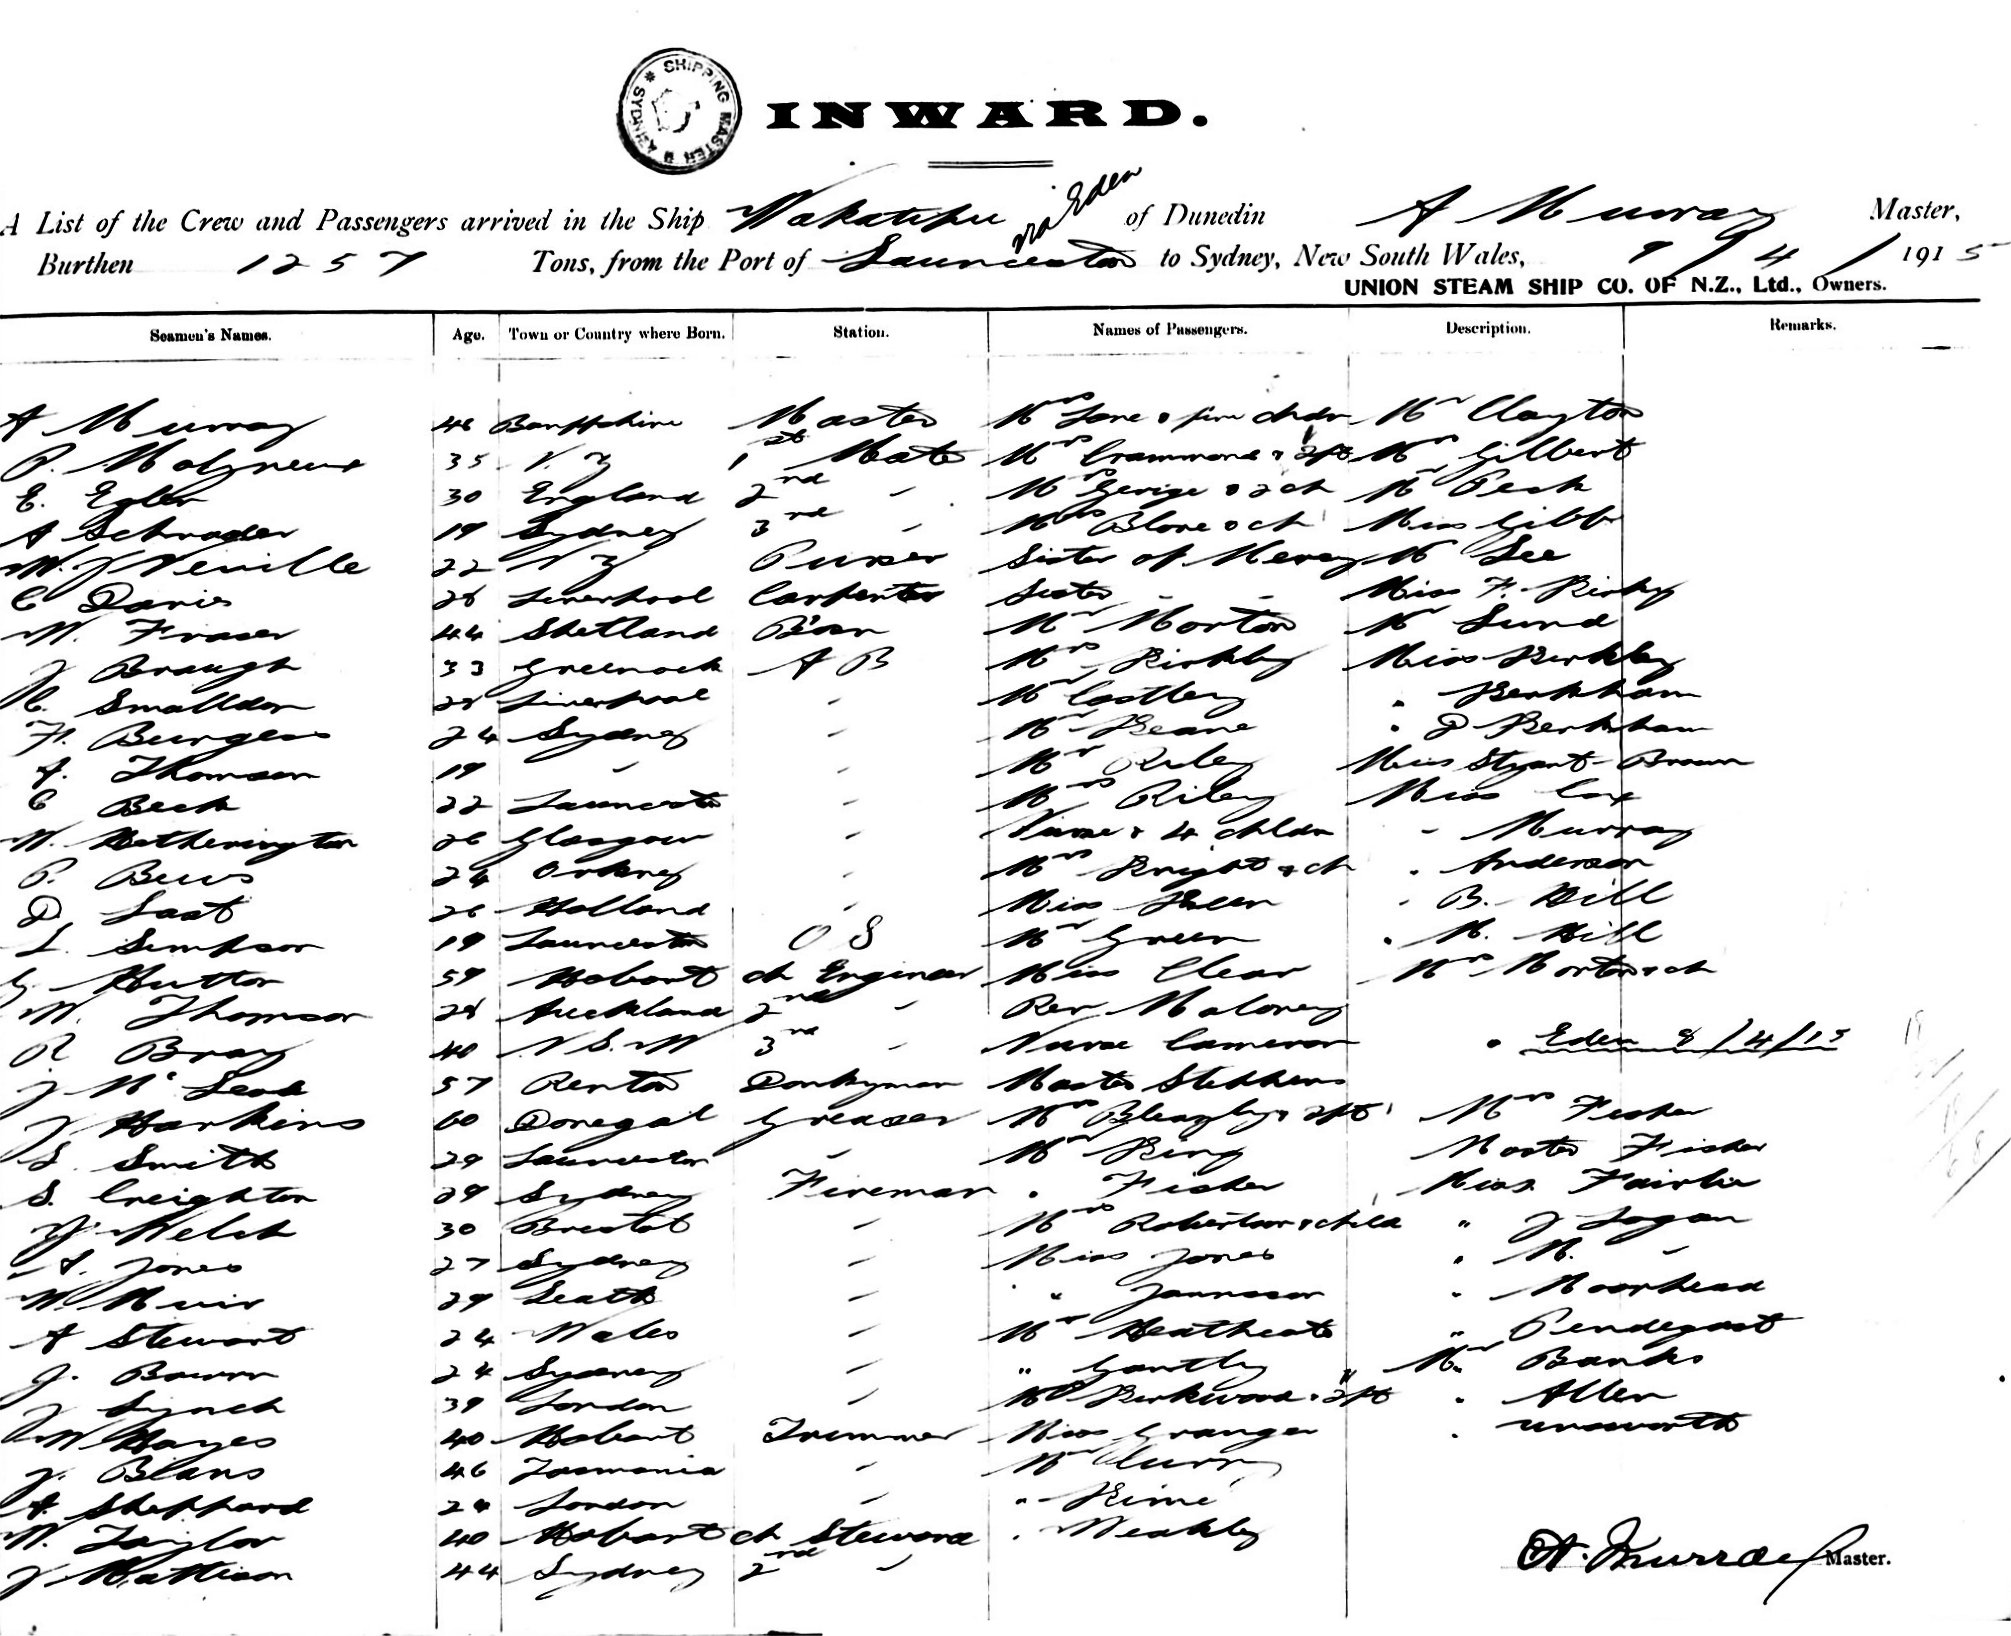 SHIPPING MASTER SYDNEY
INWARD.
A List of the Crew and Passengers arrived in the Ship Wakatipu via Eden of Dunedin A Murray Master,
Burthen 1257 Tons, from the Port of Launceston to Sydney, New South Wales, 9/4/1915
UNION STEAM SHIP CO. OF N.Z., Ltd., Owners.
Seamen's Names. Age. Town or Country where Born. Station. Names of Passengers. Description. Remarks.
A Murray 48 Banffshire Master Mrs Lane & five chdn Mr Clayton
P. Molyneux 35 N.Z 1st Mate Mrs Crammond & 2ft Mrs Gilbert
E. Egler 30 England 2nd " Mrs George & 2 ch Mr Peck
A Schroder 19 Sydney 3rd " Mrs Blore & ch Miss Gibb
W. J Neville 22 N Z Purser Sister of Mercy Mr Lee
C Davis 26 Liverpool Carpenter Sister " " Miss F. Kirby
M. Fraser 44 Shetland B'sn Mr Morton Mr Lund
J Brough 33 Greenock A B Mrs Kirkby Miss Kirkby
Smalldon 28 Liverpool " Mr Castley " Berkham
F. Burgess 24 Sydney " Mr Keane " D Berkham
A. Thomson 19 " " Mr Riley Miss Styant-Brown
C Beck 22 Launceston " Mrs Riley Miss Cox
W. Hetherington 26 Glasgow " Nurse & 4 chldn " Murray
P. Bews 24 Orkney " Mrs Knight & ch " Anderson
D. Last 26 Holland " Miss " B. Hill
L. Simpson 19 Launceston O S Mr Green " M. Hill
G. Hutton 59 Hobart ch Engineer Miss Clear Mrs Morton & ch
W. Thomson 28 Auckland 2nd " Rev Maloney
R Bray 40 N.S.W 3rd " Nurse Cameron " Eden 8/4/15
J McLeod 57 Renton Donkyman Master Stebbens
J Harkins 60 Donegal Greaser Mrs Bleazby & 2ft Mrs Fisher
L. Smith 29 Launceston " Mr King Master Fisher
S. Creighton 29 Sydney Fireman " Fisher Miss Fairlie
J. Welch 30 Bristol " Mrs Robertson & child " J Logan
A. Jones 27 Sydney " Miss Jones " M. "
W Muir 29 Leath " " Jannsson " Moorhead
A Stewart 24 Wales " Mr Heathcote " Pendegast
J. Bown 24 Sydney " " Gantly Mr Banks
J Lynch 39 London " Mrs Kirkwood & 2ft " Allen
W Hayes 40 Hobart Trimmer Miss Granger " unsworth
J. Blans 46 Tasmania " Mr Curry
A. Sheppard 24 London " " Kime
W. Taylor 40 Hobart ch Steward " Weakley
J Mattison 44 Sydney 2nd "
A. Murray Master.